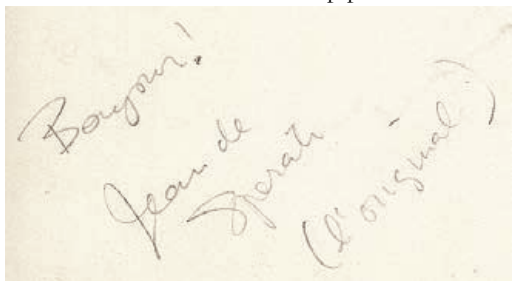 Bonjour!
Jean de
Sperati
(l'original)